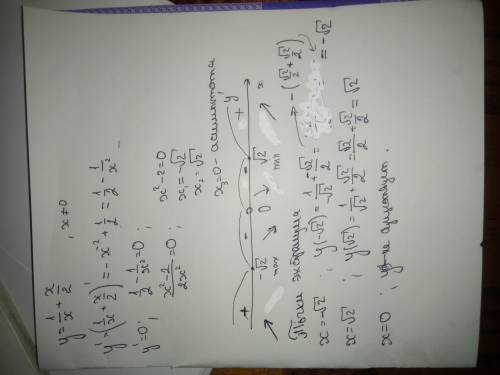 y = 1/x + x/2 , x ≠ 0
y' = (1/x + x/2)' = -x^-2 + 1/2 = 1/2 - 1/x²
y' = 0 ; 1/2 - 1/x² = 0 ;
(x² - 2)/(2x²) = 0 ; x² - 2 = 0
x₁ = -√2
x₂ = √2
x₃ = 0 - асимптота
+ - - + y'
-√2 0 √2 x
max min
Точки экстремума
x = -√2 ; y(-√2) = 1/-√2 + -√2/2 = - (√2/2 + √2/2) = -√2
x = √2 ; y(√2) = 1/√2 + √2/2 = √2/2 + √2/2 = √2
x = 0 ; не существует.